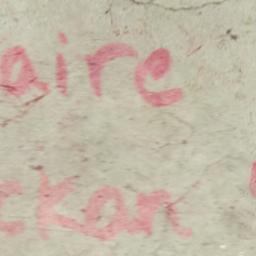 aire
ckan